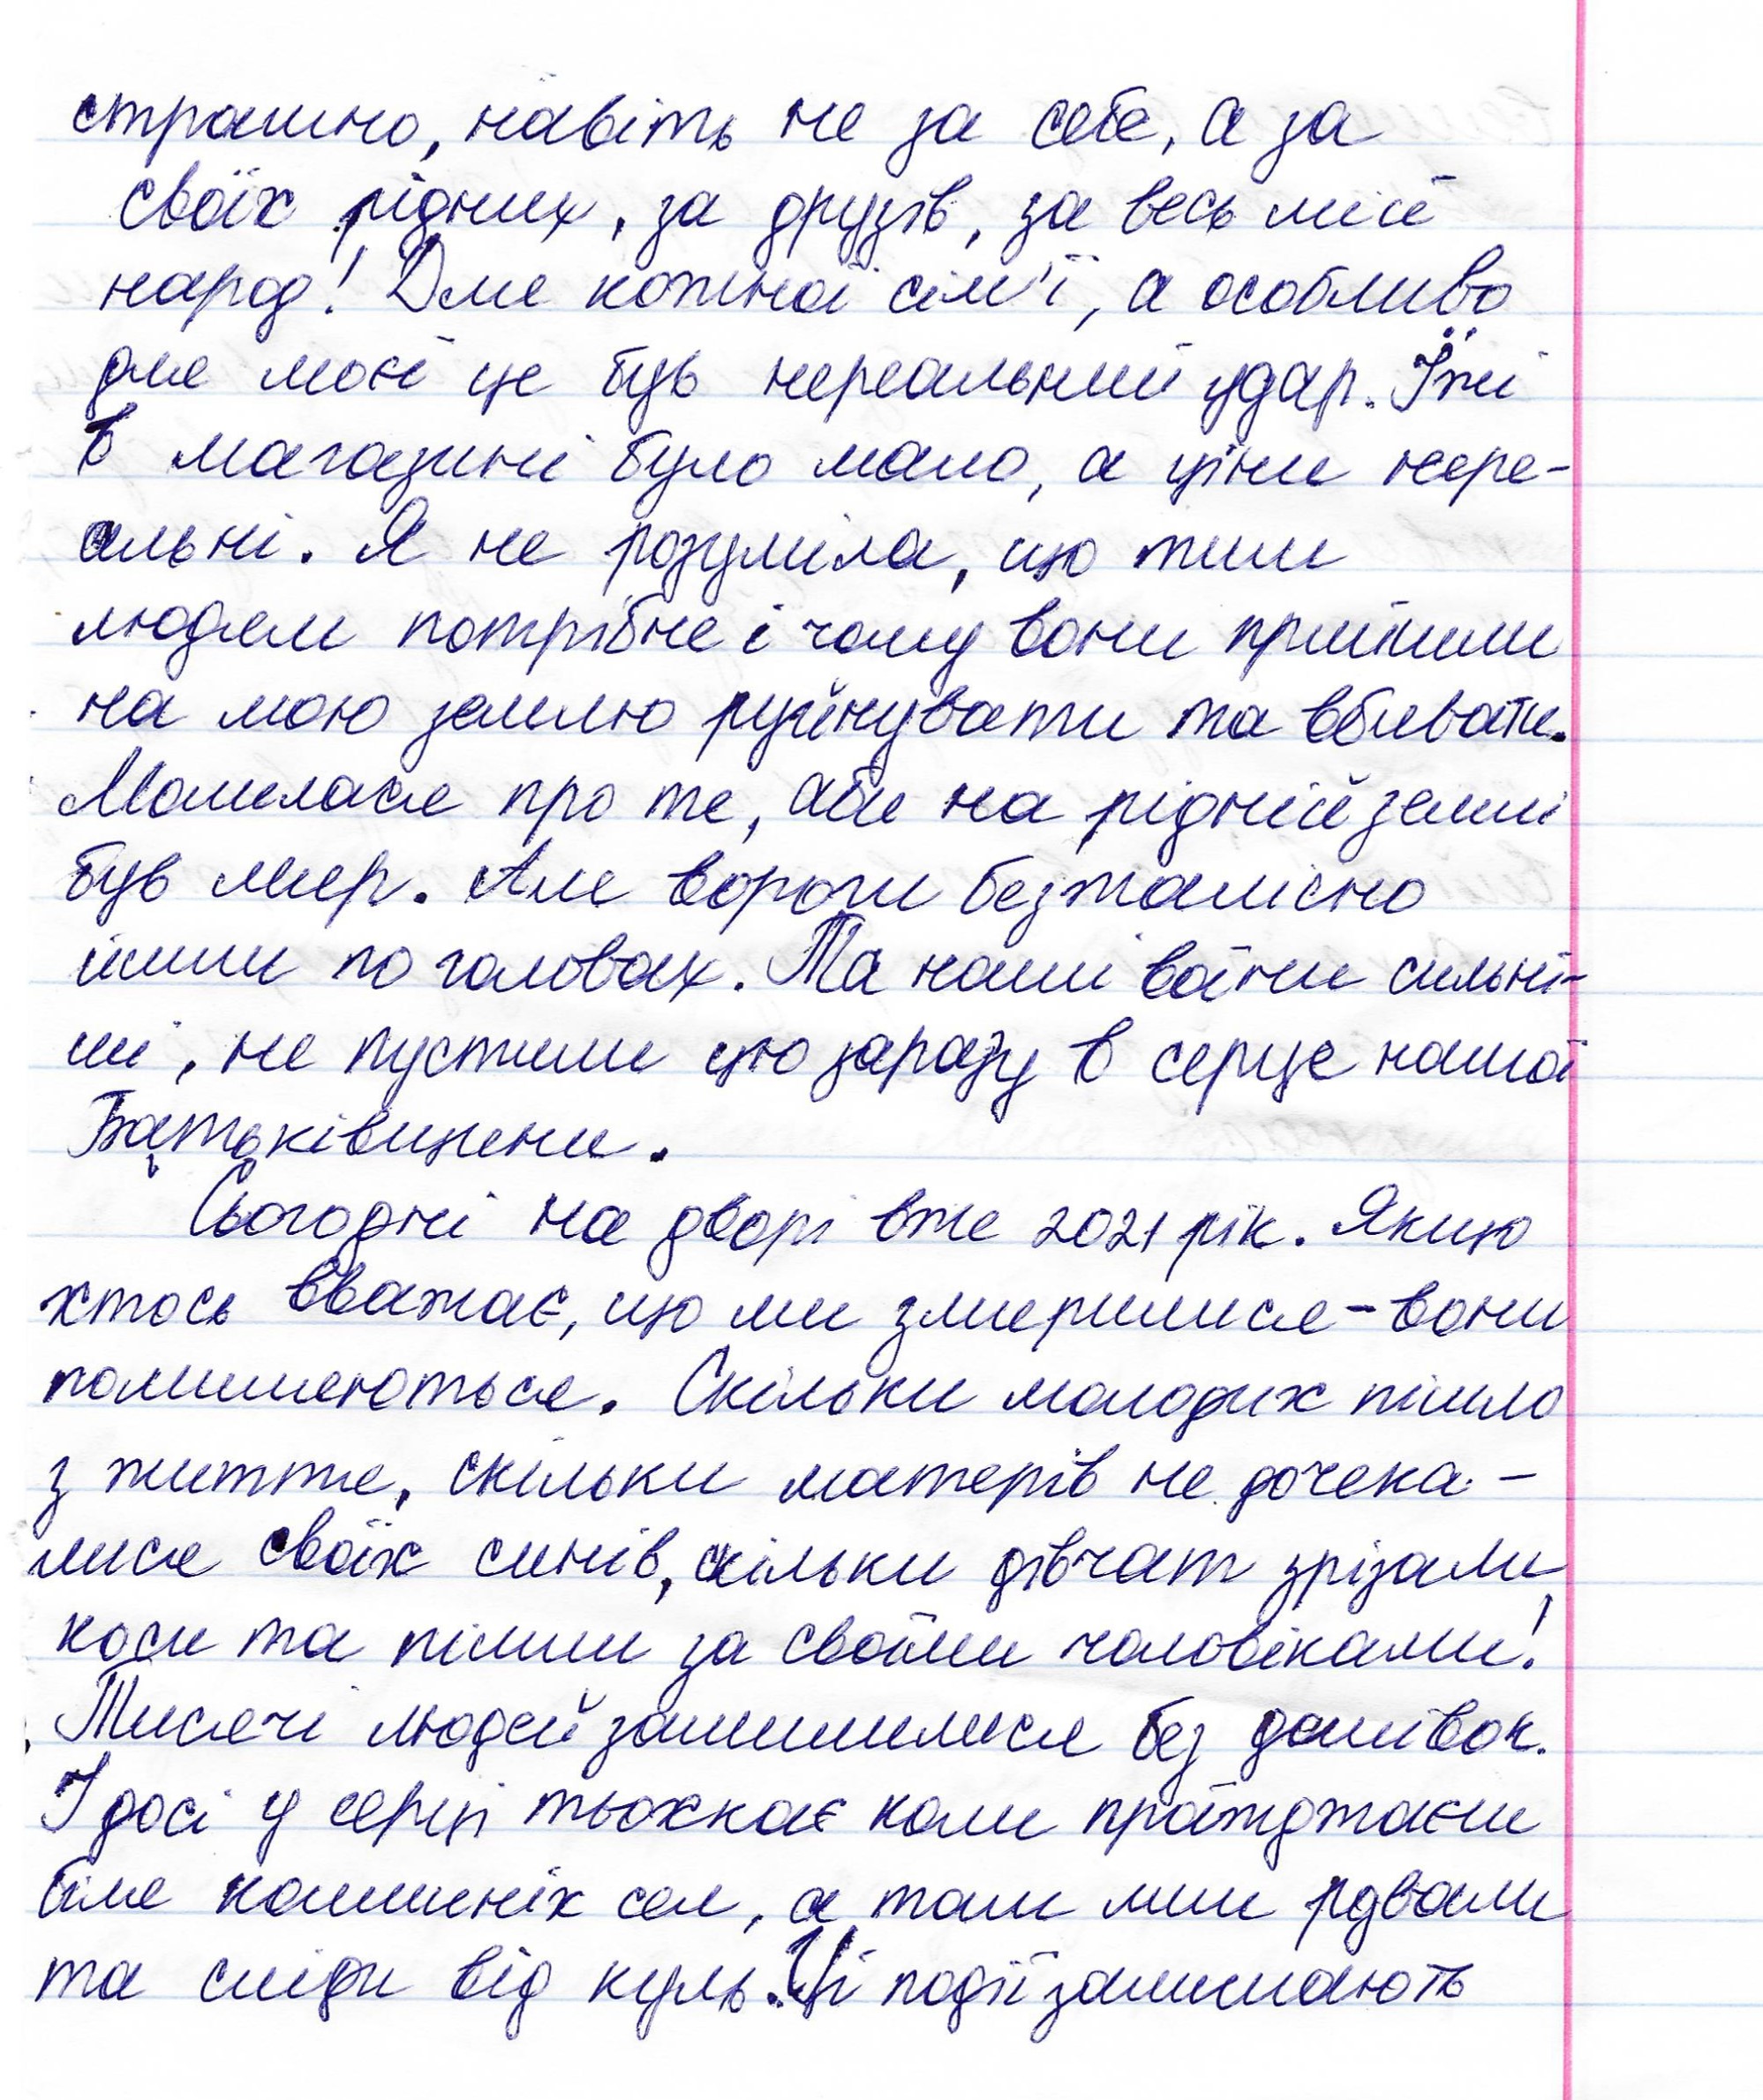 страшно, навіть не за себе, а за
своїх рідних, за друзів, за весь мій
народ! Для кожної сім'ї, а особливо
для моєї це був нереальний удар. Їжі
в магазині було мало, а ціни нере-
альні. Я не розуміла, що тим
людям потрібне і чому вони прийшли
на мою землю руйнувати та вбивати.
Молилася про те, аби на рідній землі
був мир. Але вороги безжалісно
йшли по головах. Та наші воїни сильні-
ші, не пустили цю заразу в серце нашої
Батьківщини.
Сьогодні на дворі вже 2021 рік. Якщо
хтось вважає, що ми змирилися - вони
помиляються. Скільки молодих пішло
з життя, скільки матерів не дочека-
лися своїх синів, скільки дівчат зрізали
коси та пішли за своїми чоловіками!
Тисячі людей залишилися без домівок.
І досі у серці тьохкає коли проїжджаєш
біля колишніх сел, а там лиш рдвали
та сліди від куль. Ці події залишають